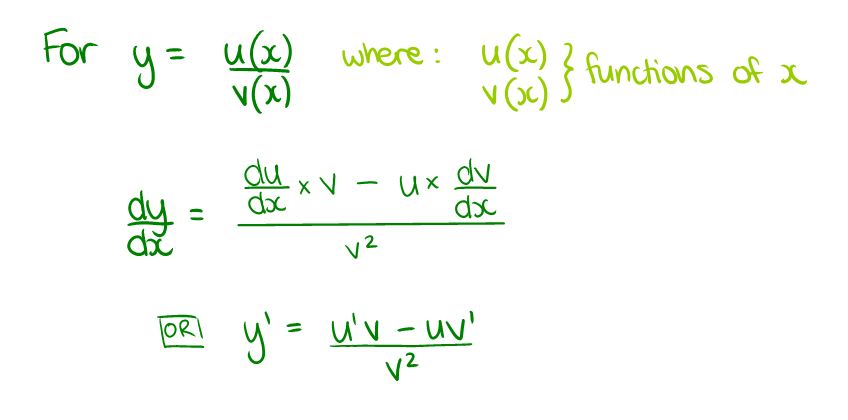 For y = u(x)/v(x) where: u(x) v(x) } functions of x
dy/dx = (du/dx × v − u × dv/dx)/v²
OR y' = (u'v − uv')/v²